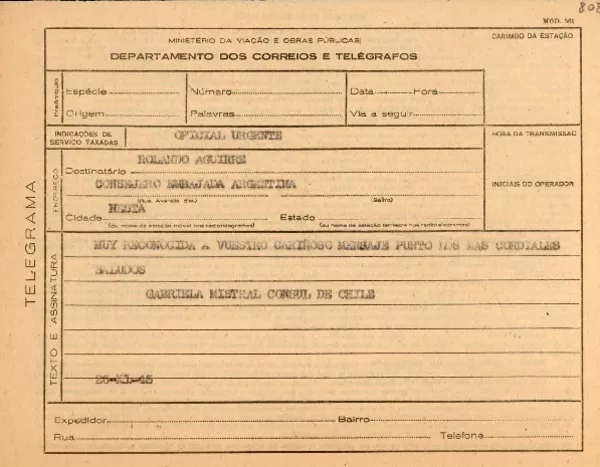 808
MOD. 91
MINISTÉRIO DA VIAÇÃO E OBRAS PÚBLICAS
CARIMBO DA ESTAÇÃO
DEPARTAMENTO DOS CORREIOS E TELÉGRAFOS
Preâmbulo
Espécie Número Data Hora
Origem Palavras Via a seguir
INDICAÇÕES DE SERVIÇO TAXADAS
OFICIAL URGENTE
HORA DA TRANSMISSÃO
ENDEREÇO
ROLANDO AGUIRRE
Destinatário
CONSEJERO EMBAJADA ARGENTINA
INICIAIS DO OPERADOR
(Rua, Avenida, Etc.) (Bairro)
NESTA
Cidade Estado
(ou nome da estação móvel nos radiotelegramas) (ou nome da estação terrestre nos radiotelegramas)
TELEGRAMA
TEXTO E ASSINATURA
MUY RECONOCIDA A VUESTRO CARIÑOSO MENSAJE PUNTO LOS MAS CORDIALES
SALUDOS
GABRIELA MISTRAL CONSUL DE CHILE
26-XI-45
Expedidor Bairro
Rua Telefone